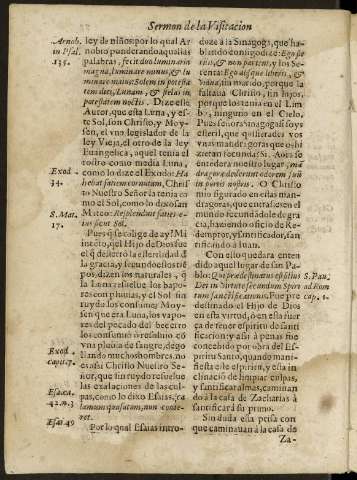 Sermon de la Visitacion
Arnob.
in Psal.
135.
ley de niños por lo qual Ar
nobio ponderando aquellas
palabras, fecit duo luminaria
magna, luminare maius, & lu
minare minus: Solem in potesta
tem diei, Lunam, & stellas in
potestatem noctis. Dize este
Autor, que esta Luna, y es-
te Sol, son Christo, y Moy-
sen, el vno legislador de la
ley Vieja, el otro de la ley
Euangelica, aquel tenia el
rostro como media Luna,
Exod.
34.
como lo dize el Exodo: Ha
bebat faciem cornutam, Chris-
to Nuestro Señor la tenia co
mo el Sol, como lo dixo san
S. Mat.
17.
Mateo: Resplenduit facies e-
ius sicut Sol.
Pues que se colige de ay? Mi
intēto, q̃ el Hijo de Dios fue
el q̃ desterro la esterilidad d̃
la gracia, y fecundò estos cā
pos, dizen los naturales, q̃
la Luna resuelue los bapo-
res con pluuias, y el Sol sin
ruydo los consume: Moy-
sen que era Luna, los vapo-
res del pecado del becerro
los consumiò o resoluiò cō
vna pluuia de sangre, dego
Exod.
cap. 17.
llando muchos hombres, no
es assi Christo Nuestro Se-
ñor, que sin ruydo resuelue
las exalaciones de las cul-
Esa. ca.
42. n. 3
pas, como lo dixo Esaias, ca
lamum quasatum, non conte-
ret.
Esai. 49
Por lo qual Esaias intro-
duze à la Sinagoga, que ha-
blando consigo dize: Ego ste
rilis, & non pariens, y los Se-
tenta: Ego absque liberis, &
vidua, sin marido, porque la
faltaua Christo, sin hijos,
porque los tenia en el Lim
bo, ninguno en el Cielo.
Pues señora Sinagoga si soys
esteril, que
vnas mandragoras que os hi
zieran fecunda? Si. Aora se
entenderà nuestro lugar, mā
dragoræ dederunt odorem suū
in portis nostris. O Christo
mio figurado en estas man-
dragoras, que entrastes en el
mundo fecundandole de gra
cia, haziendo oficio de Re-
demptor, y santificador, san
tificando à Iuan.
Con esto quedara enten
dido aquel lugar de san Pa-
S. Pau.
ad Rom
cap. 1.
blo: Qui prædestinatus est filius
Dei in virtute secundum Spiri
tum sanctificationis. Fue pre
destinado el Hijo de Dios
en esta virtud, ò en esta fuer
ça de tener espiritu de santi
ficcion; y assi à penas fue
concebido por obra del Es-
piritu Santo, quando mani-
fiesta este espiritu, y esta in
clinacion de limpiar culpas,
y santificar almas, caminan
do à la casa de Zacharias à
santificar à su primo.
Sin duda esta prisa con
que caminauan à la casa de
Za-